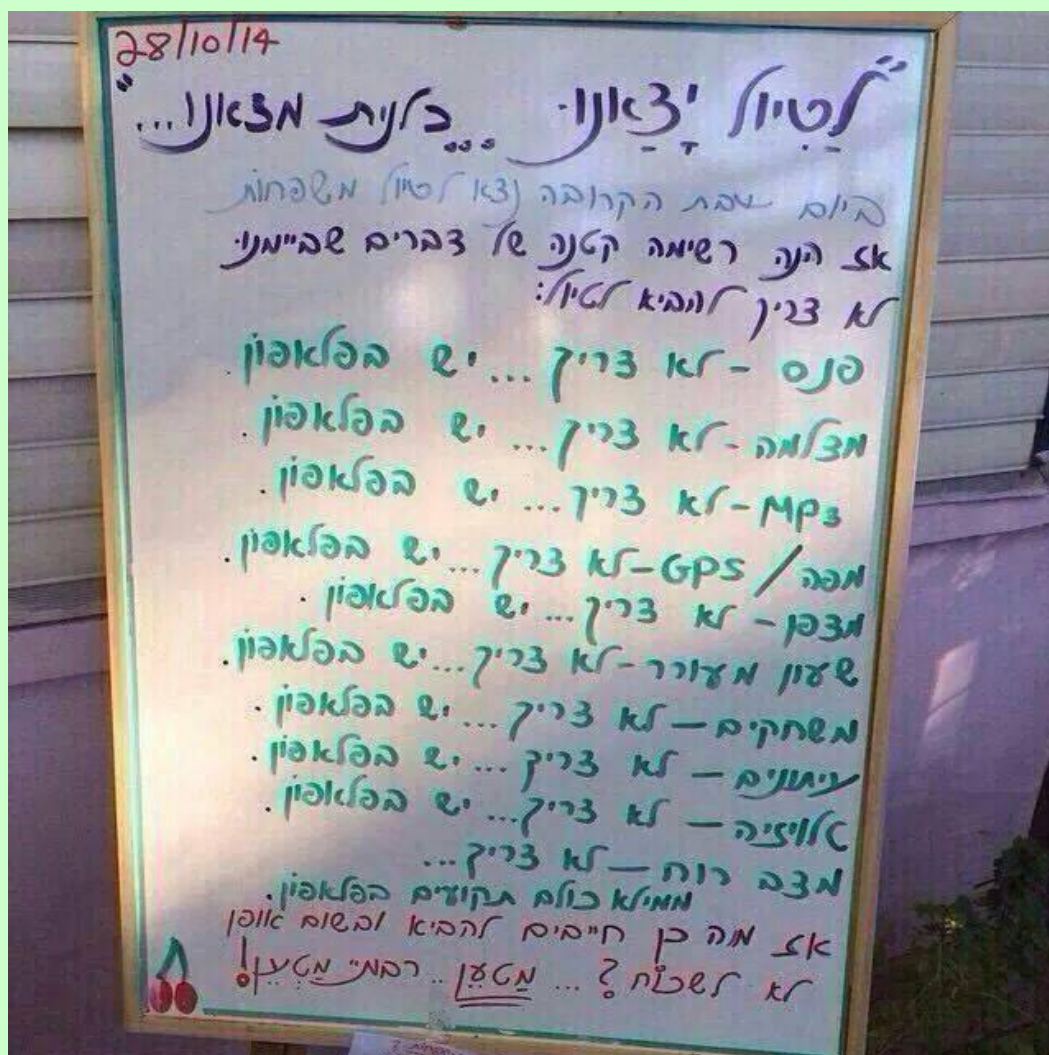 28/10/14
"לַטִיוּל יָצַאנוּ ...כלנית מצאנו..."
ביום שבת הקרובה נצא לטיול משפחות
אז הנה רשימה קטנה של דברים שביימנו
לא צריך להביא לטיול:
פנס - לא צריך... יש בפלאפון.
מצלמה - לא צריך... יש בפלאפון.
MP3 - לא צריך... יש בפלאפון.
מפה / GPS - לא צריך... יש בפלאפון.
מצפן - לא צריך... יש בפלאפון.
שעון מעורר - לא צריך... יש בפלאפון.
משחקים - לא צריך... יש בפלאפון.
עיתונים - לא צריך... יש בפלאפון.
טלויזיה - לא צריך... יש בפלאפון.
מצב רוח - לא צריך...
ממילא כולם תקועים בפלאפון.
אז מה כן חייבים להביא ובשום אופן
לא לשכוח? ... מַטְעֵן .. רבתיי מַטְעֵן!